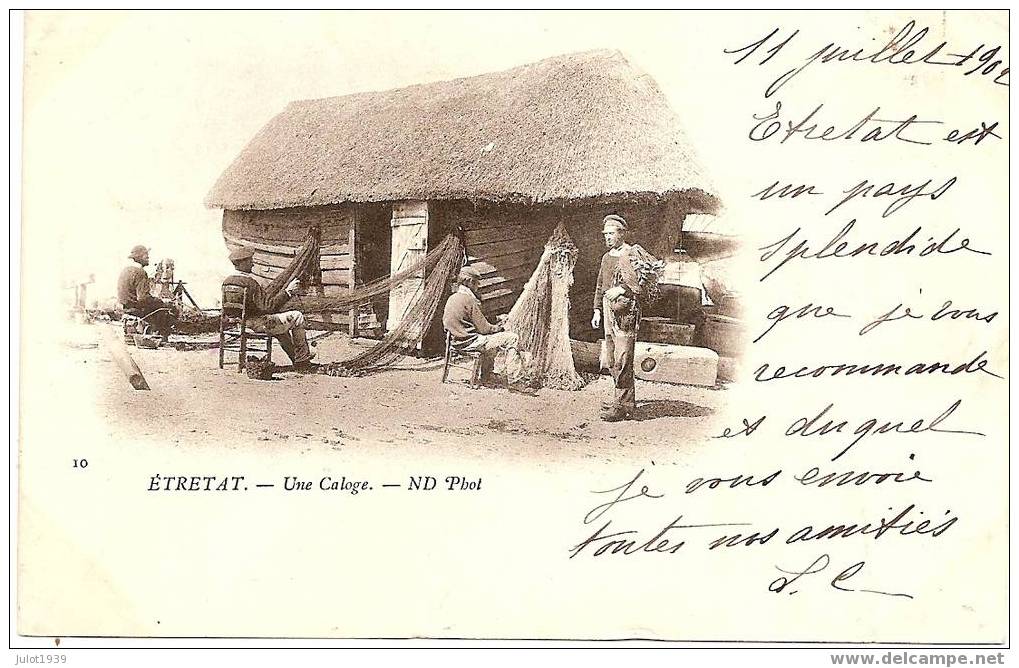 11 juillet 1902
Etretat est
un pays
splendide
que je vous
recommande
et duquel
je vous envoie
toutes nos amitiés
L. C
10
ÉTRETAT. — Une Caloge. — ND Phot
jul1939
www.delcampe.net